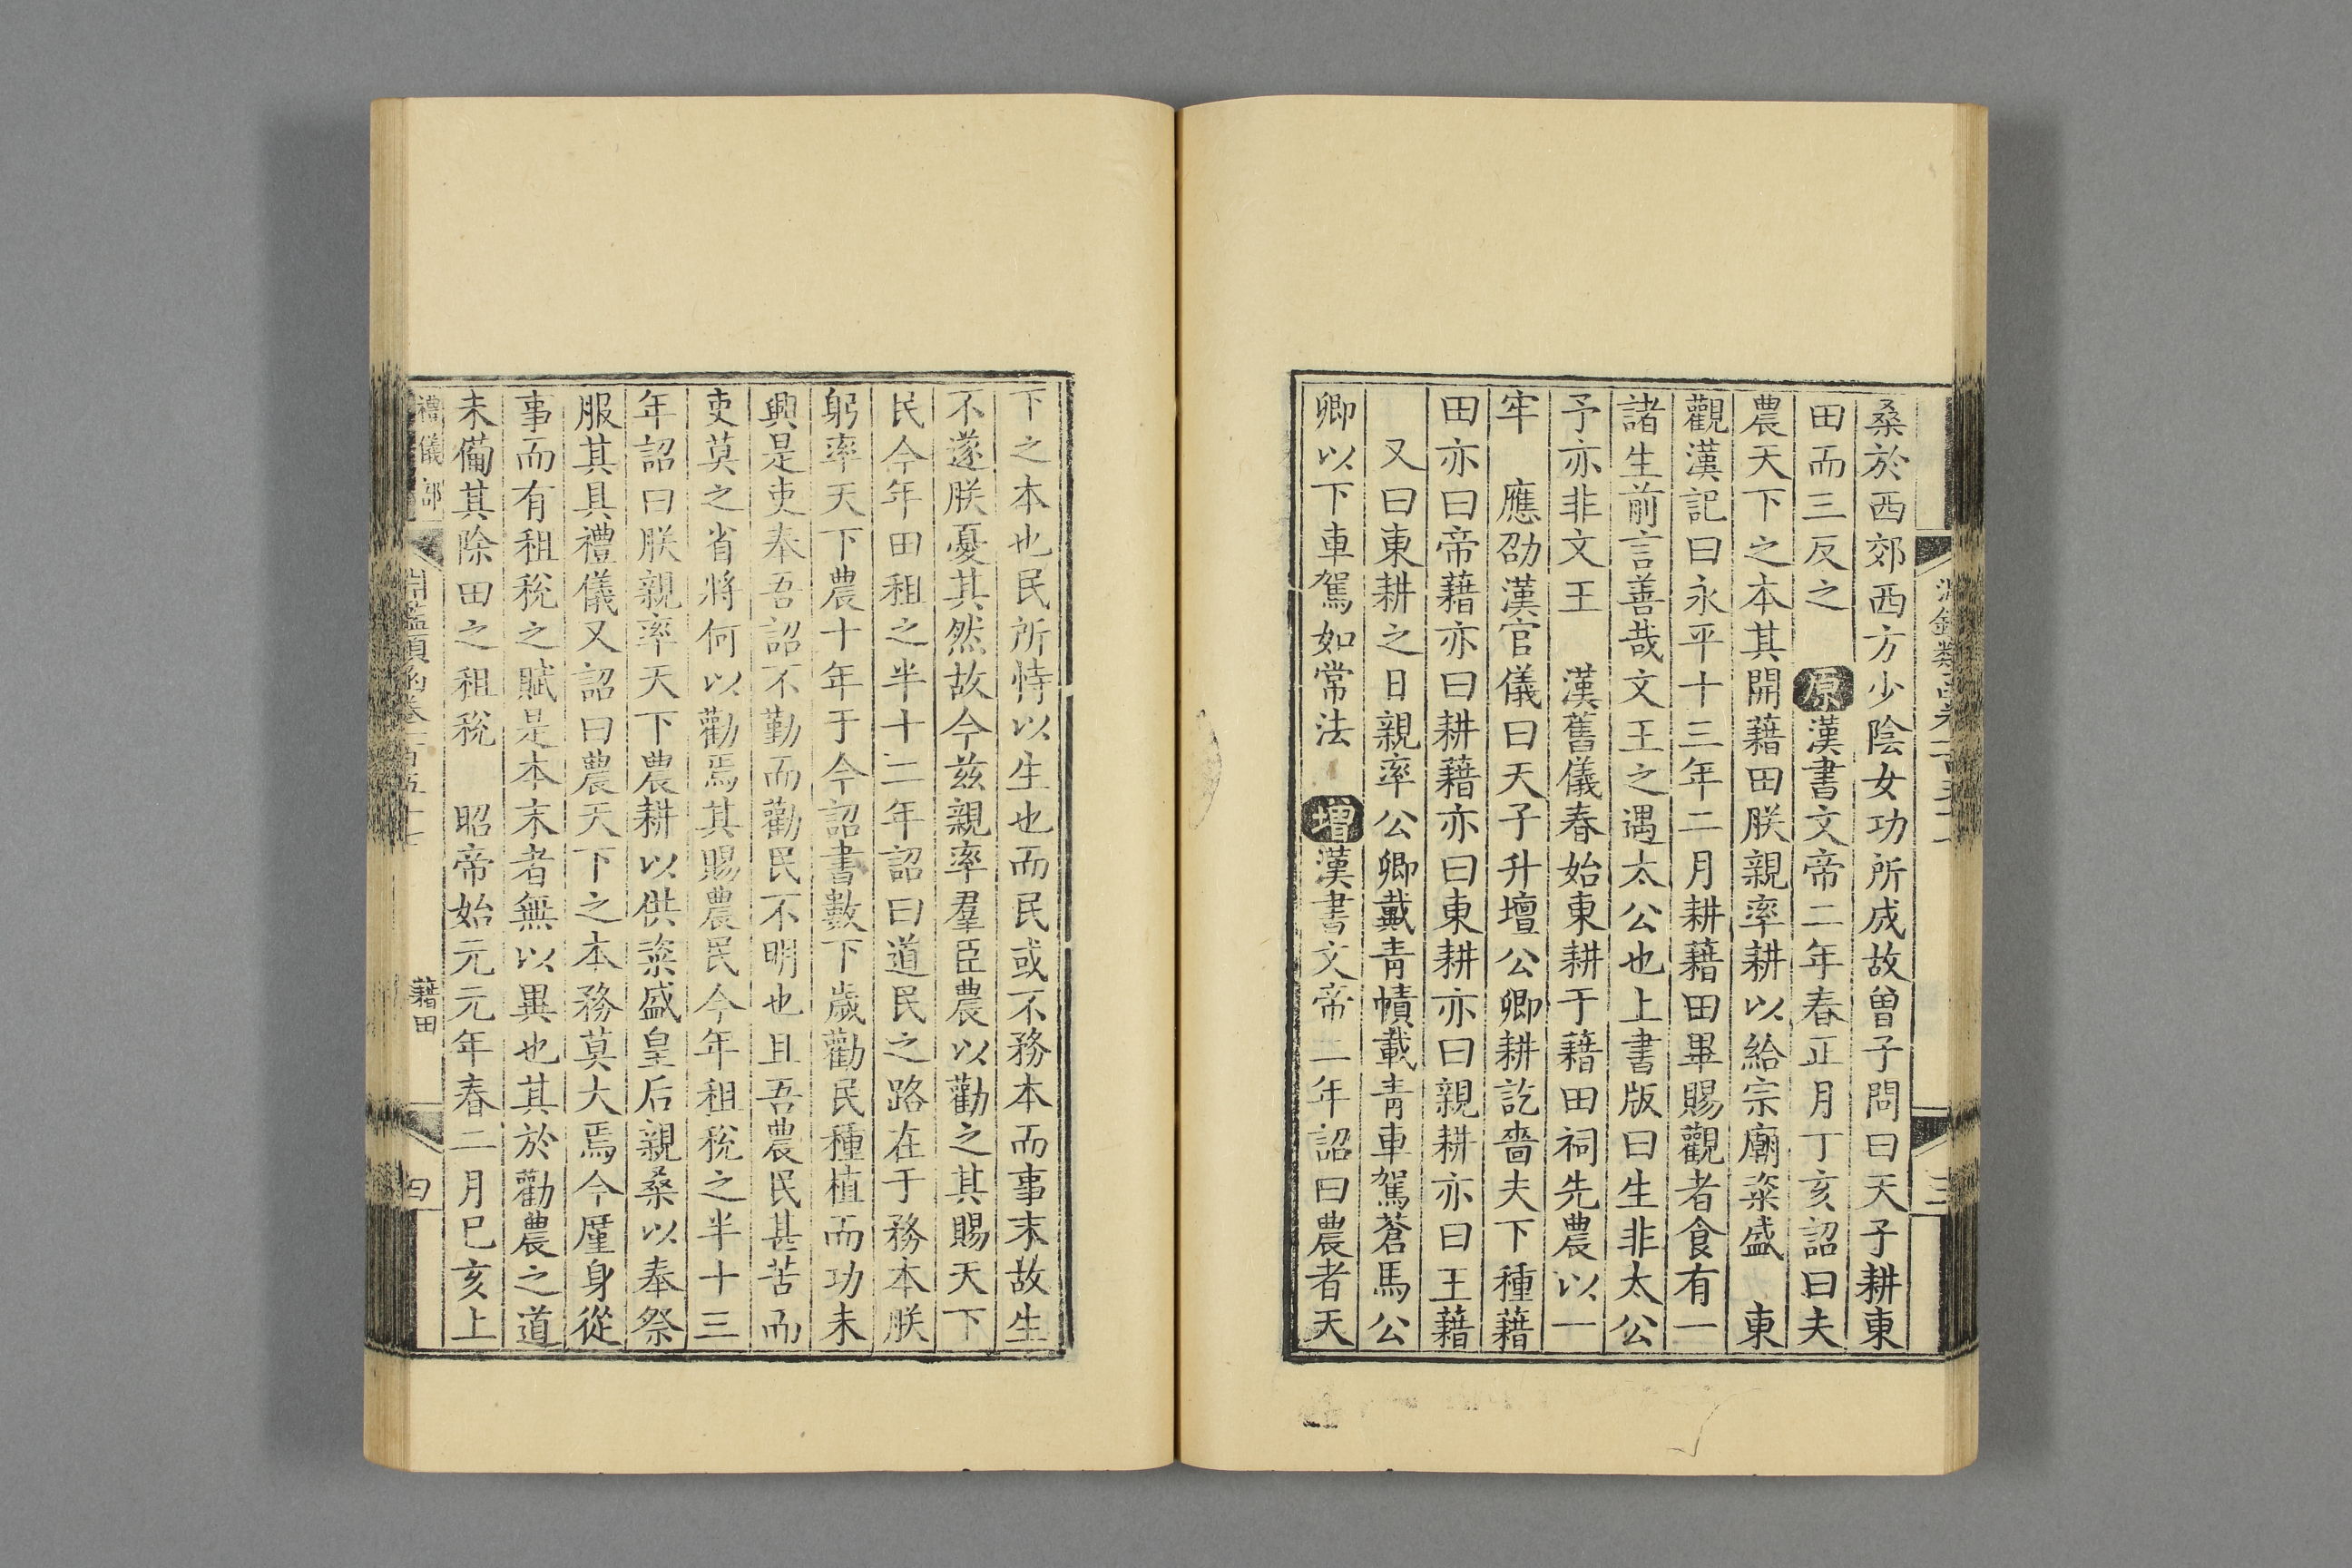 桑於西郊西方少陰女功所成故曾子問曰天子耕東
田而三反之 原漢書文帝二年春正月丁亥詔曰夫
農天下之本其開藉田朕親率耕以給宗廟粢盛 東
觀漢記曰永平十三年二月耕藉田畢賜觀者食有一
諸生前言善哉文王之遇太公也上書版曰生非太公
予亦非文王 漢舊儀春始東耕于藉田祠先農以一
牢 應劭漢官儀曰天子升壇公卿耕訖嗇夫下種藉
田亦曰帝藉亦曰耕藉亦曰東耕亦曰親耕亦曰王藉
又曰東耕之日親率公卿戴青幘載青車駕蒼馬公
卿以下車駕如常法 增漢書文帝二年詔曰農者天
三
下之本也民所恃以生也而民或不務本而事末故生
不遂朕憂其然故今茲親率羣臣農以勸之其賜天下
民今年田租之半十二年詔曰道民之路在于務本朕
躬率天下農十年于今詔書數下歲勸民種植而功未
興是吏奉吾詔不勤而勸民不明也且吾農民甚苦而
吏莫之省將何以勸焉其賜農民今年租稅之半十三
年詔曰朕親率天下農耕以供粢盛皇后親桑以奉祭
服其具禮儀又詔曰農天下之本務莫大焉今厪身從
事而有租稅之賦是本末者無以異也其於勸農之道
未備其除田之租稅 昭帝始元元年春二月己亥上
禮儀部 淵鑑類函卷一百五十七 藉田 四